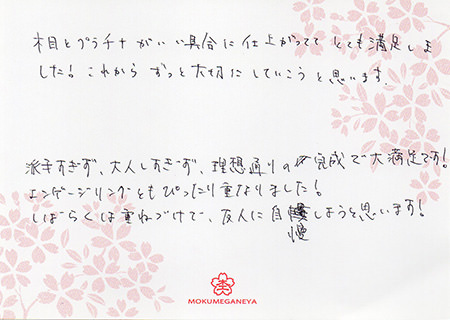 木目とプラチナがいい具合に仕上がってて とても満足しま
した! これから ずっと大切にしていこうと思います.
派手すぎず、大人しすぎず、理想通りの完成で大満足です!
エンゲージリングともぴったり重なりました!
しばらくは重ねづけで、友人に自慢しようと思います!
MOKUMEGANEYA